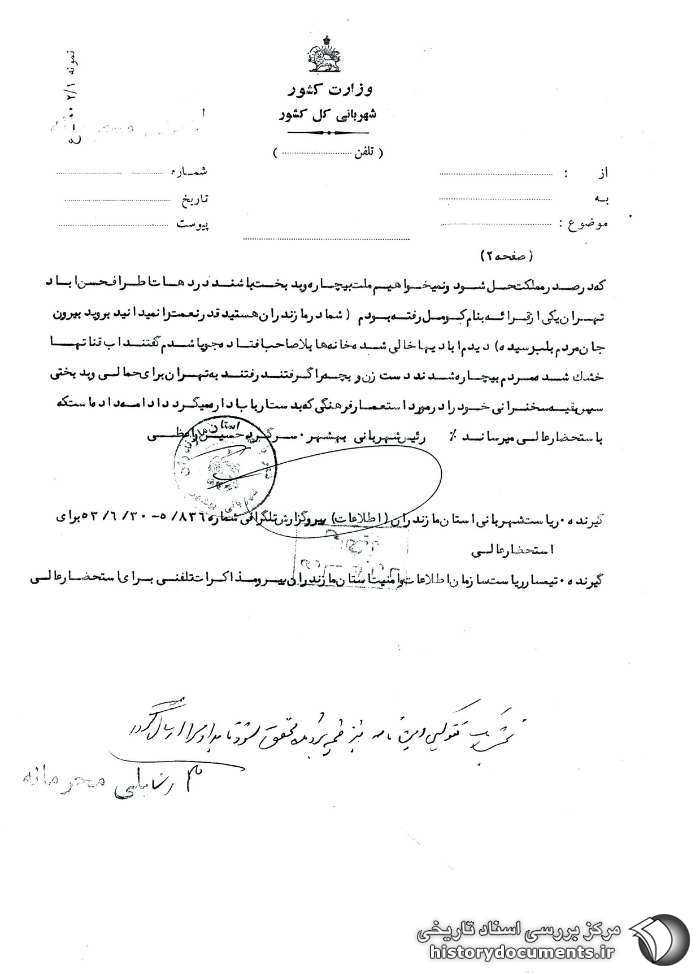 نمونه ۲/۱
وزارت کشور
شهربانی کل کشور
( تلفن .................... )
از : ....................
به ....................
موضوع : ....................
شماره ....................
تاریخ ....................
پیوست ....................
(صفحه ۲)
که در صدر مملکت حل شود ونمیخواهیم ملت بیچاره وبد بخت باشند در دهات اطراف حسن اباد
تهران یکی از قرائه بنام کومل رفته بودم ( شما در مازندران هستید قدر نعمت را نمیدانید بروید بیرون
جان مردم بلب رسیده ) دیدم ابادیها خالی شده خانه ها بلاصاحب افتاده جویا شدم گفتند اب قناتها
خشك شده مردم بیچاره شدند دست زن و بچه را گرفتند رفتند به تهران برای حمالی وبد بختی
سپس بقیه سخنرانی خود را در مورد استعمار فرهنگی که بدست اربابا دار میگردد ادامه داد ماستکه
باستحضار عالی میرساند ٪ رئیس شهربانی بهشهر . سرگرد حسین
گیرنده . ریاست شهربانی استان مازندران ( اطلاعات ) پیرو گزارش تلگرافی شماره ۵/۸۳۶ - ۵۳/۶/۳۰ برای
استحضار عالی
گیرنده . تیمسار ریاست سازمان اطلاعات وامنیت استان مازندران پیرو مذاکرات تلفنی برای استحضار عالی
محرمانه
مرکز بررسی اسناد تاریخی
historydocuments.ir